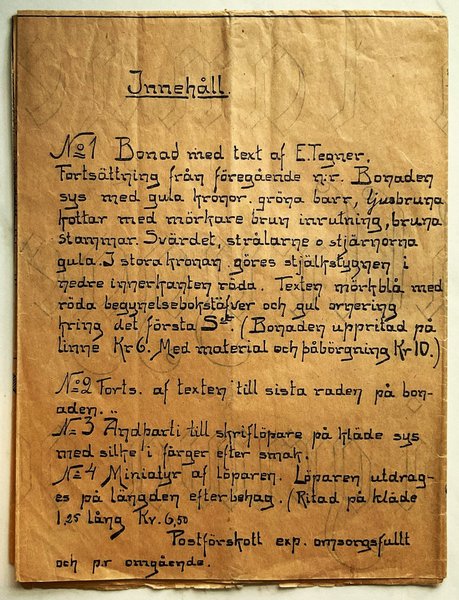 Innehåll.
No 1 Bonad med text af E. Tegner.
Fortsättning från föregående n:r. Bonaden
sys med gula kronor. gröna barr, ljusbruna
kottar med mörkare brun inrutning, bruna
stammar. Svärdet, strålarne o stjärnorna
gula. I stora kronan göres stjälkstygnen i
nedre innerkanten röda. Texten mörkblå med
röda begynelsebokstäfver och gul ornering
kring det första S:et (Bonaden uppritad på
linne Kr 6. Med material och påbörgning Kr 10.)
No 2 Forts. af texten till sista raden på bon-
aden...
No 3 Andparti till skriflöpare på kläde sys
med silke i färger efter smak.
No 4 Miniatyr af löparen. Löparen utdrag-
es på längden efter behag. (Ritad på kläde
1,25 lång Kr. 6,50
Postförskott exp. omsorgsfullt
och pr omgående.